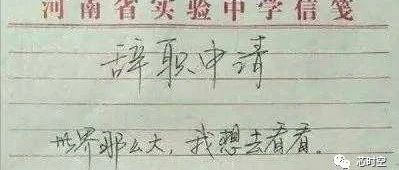 河南省实验中学信笺
辞职申请
世界那么大，我想去看看。
芯时空